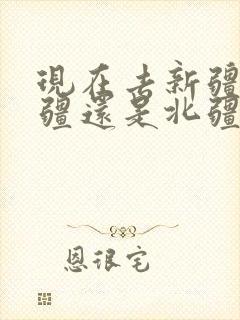 現在去新疆
疆還是北疆
恩很宅